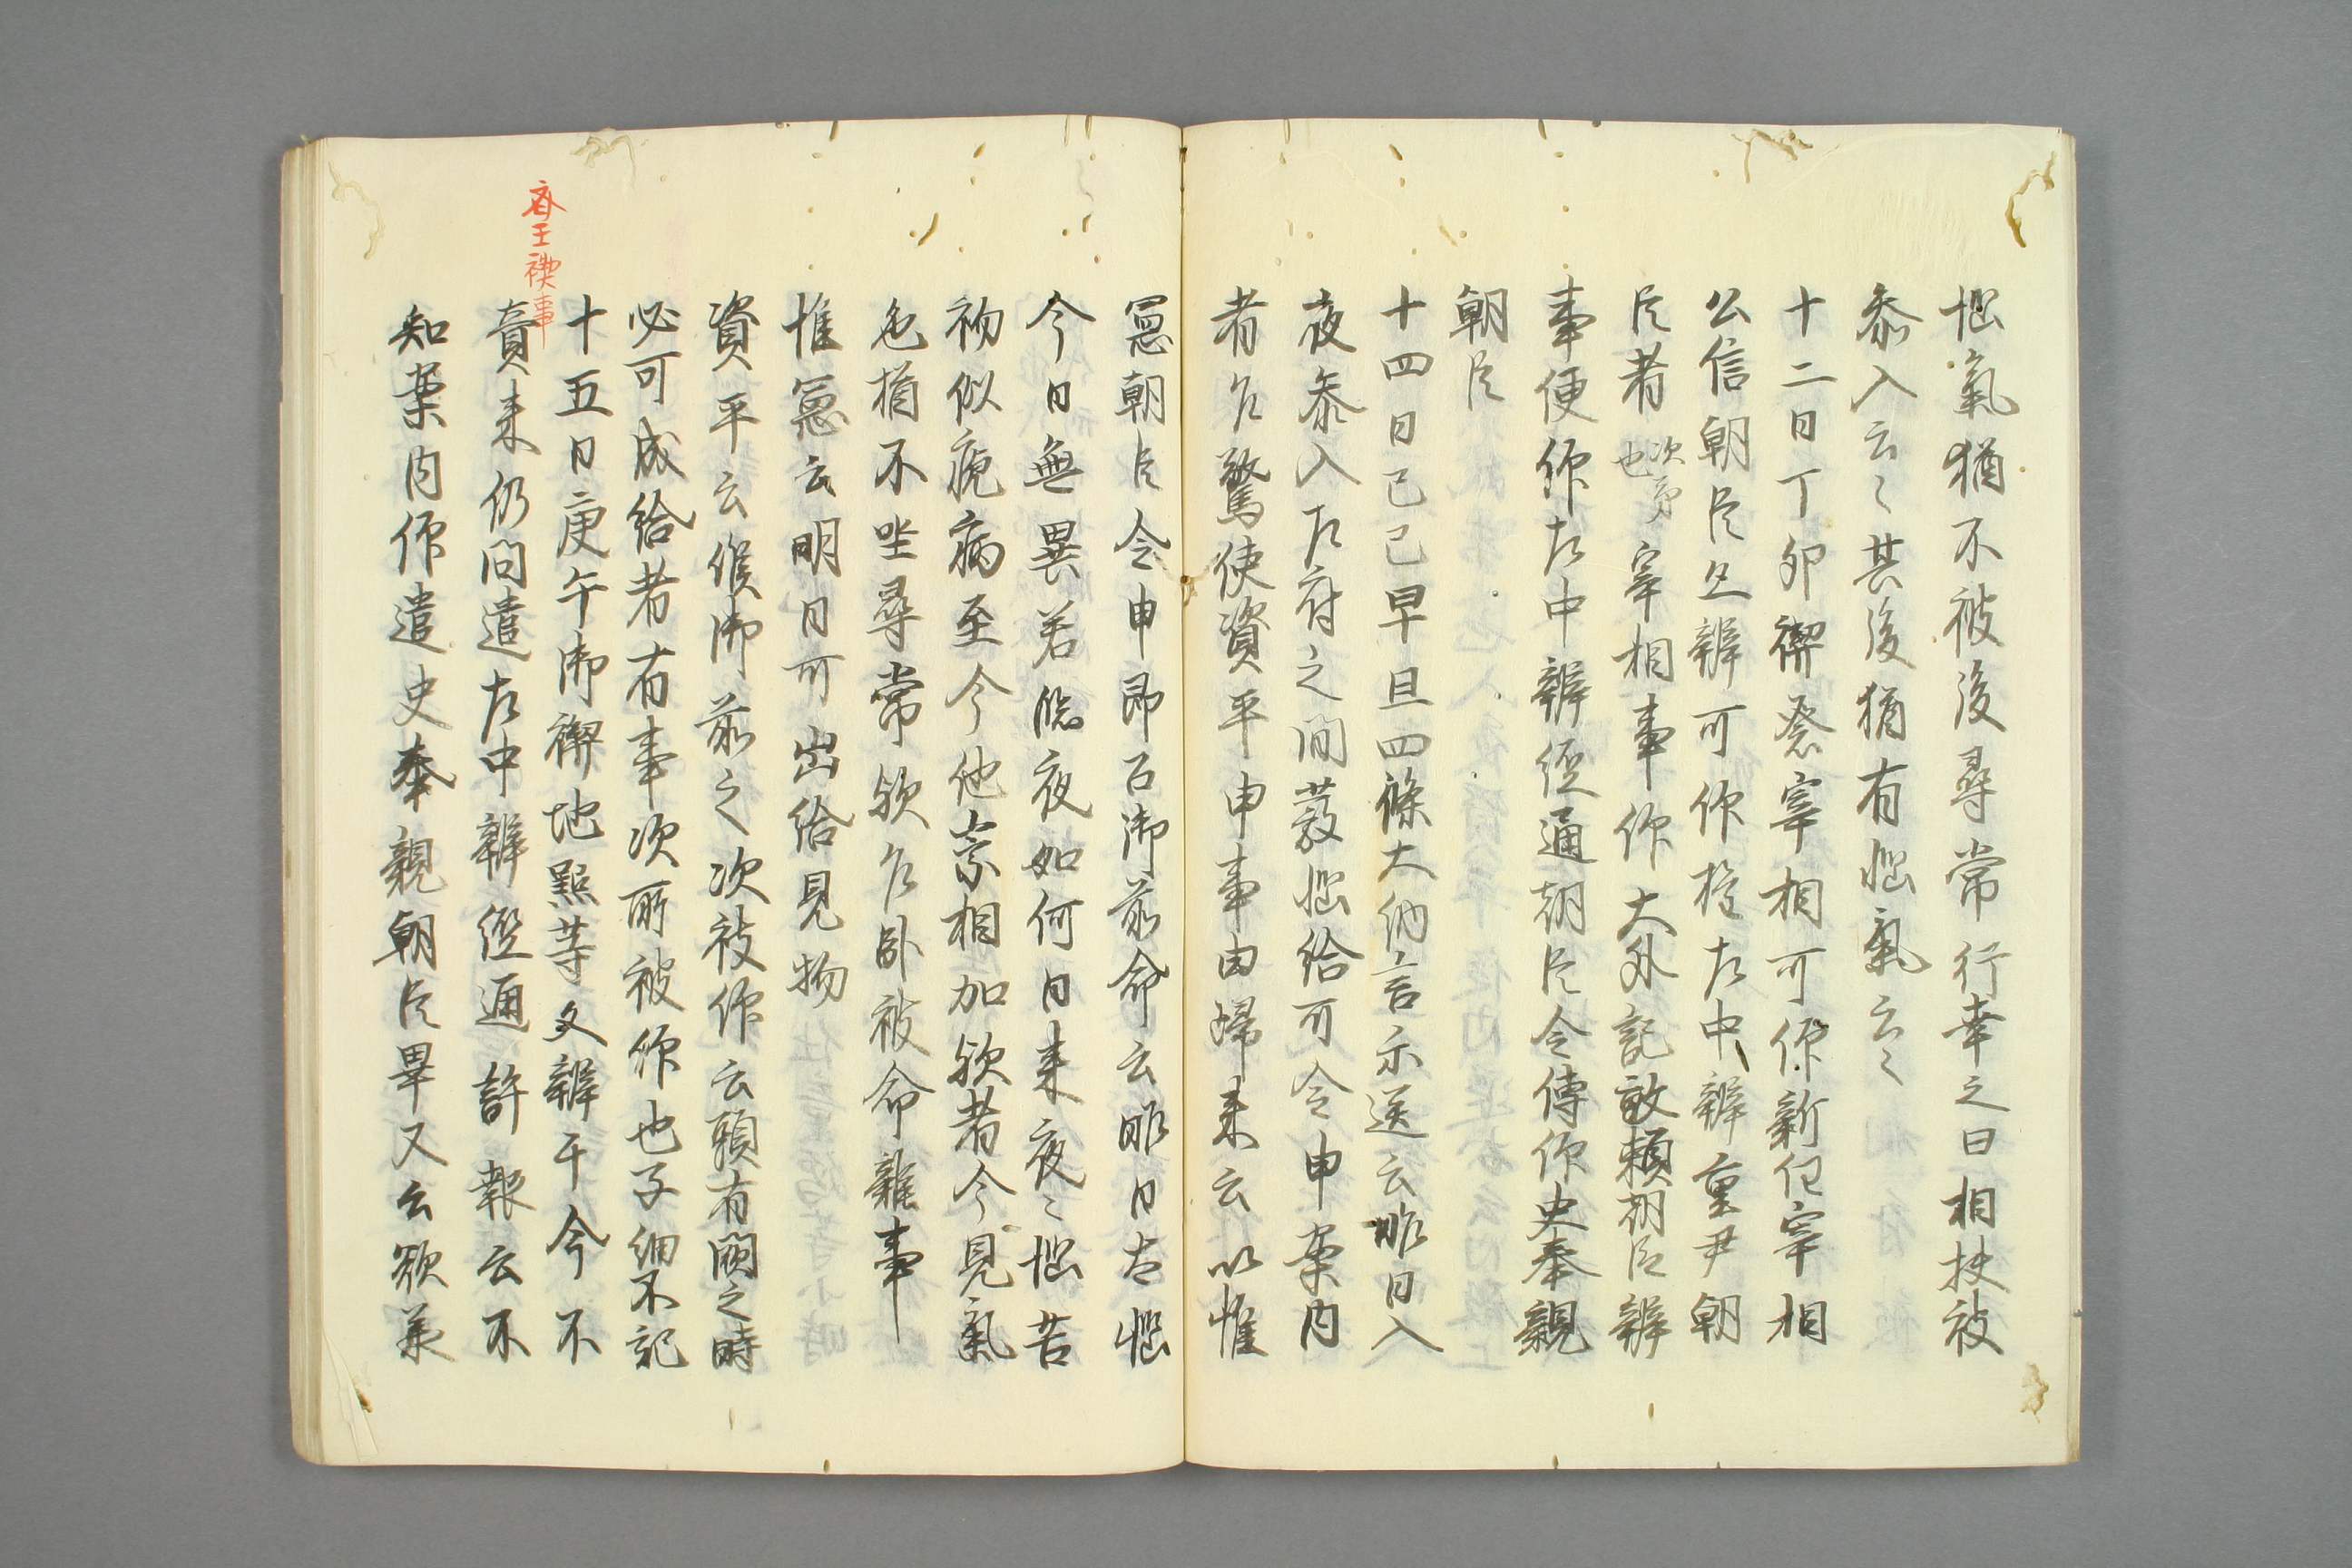 惱氣猶不被復尋常行幸之日相扶被
参入云々其後猶有惱氣云々
十二日丁卯禊祭宰相可仰新任宰相
公信朝臣上辨可仰権左中辨重尹朝
臣者次第也宰相事仰大外記敦頼朝臣辨
事便仰左中辨經通朝臣令傳仰史奉親
朝臣
十四日己巳早旦四條大納言示送云昨日入
夜参入左府之間發惱給可令申案内
者乍驚使資平申事由帰来云以惟
憲朝臣令申即召御前命云昨日太惱
今日無異若臨夜如何日来夜々惱苦
初似瘧病至今他祟相加欤者今見氣
色猶不坐尋常欤乍臥被命雜事
惟憲云明日可出給見物
資平云候御前之次被仰云頼有闕之時
必可成給者有事次所被仰也子細不記
十五日庚午御禊地點等文辨于今不
齊王禊事
賷来仍問遣左中辨經通許報云不
知案内仰遣史奉親朝臣畢又云欲美